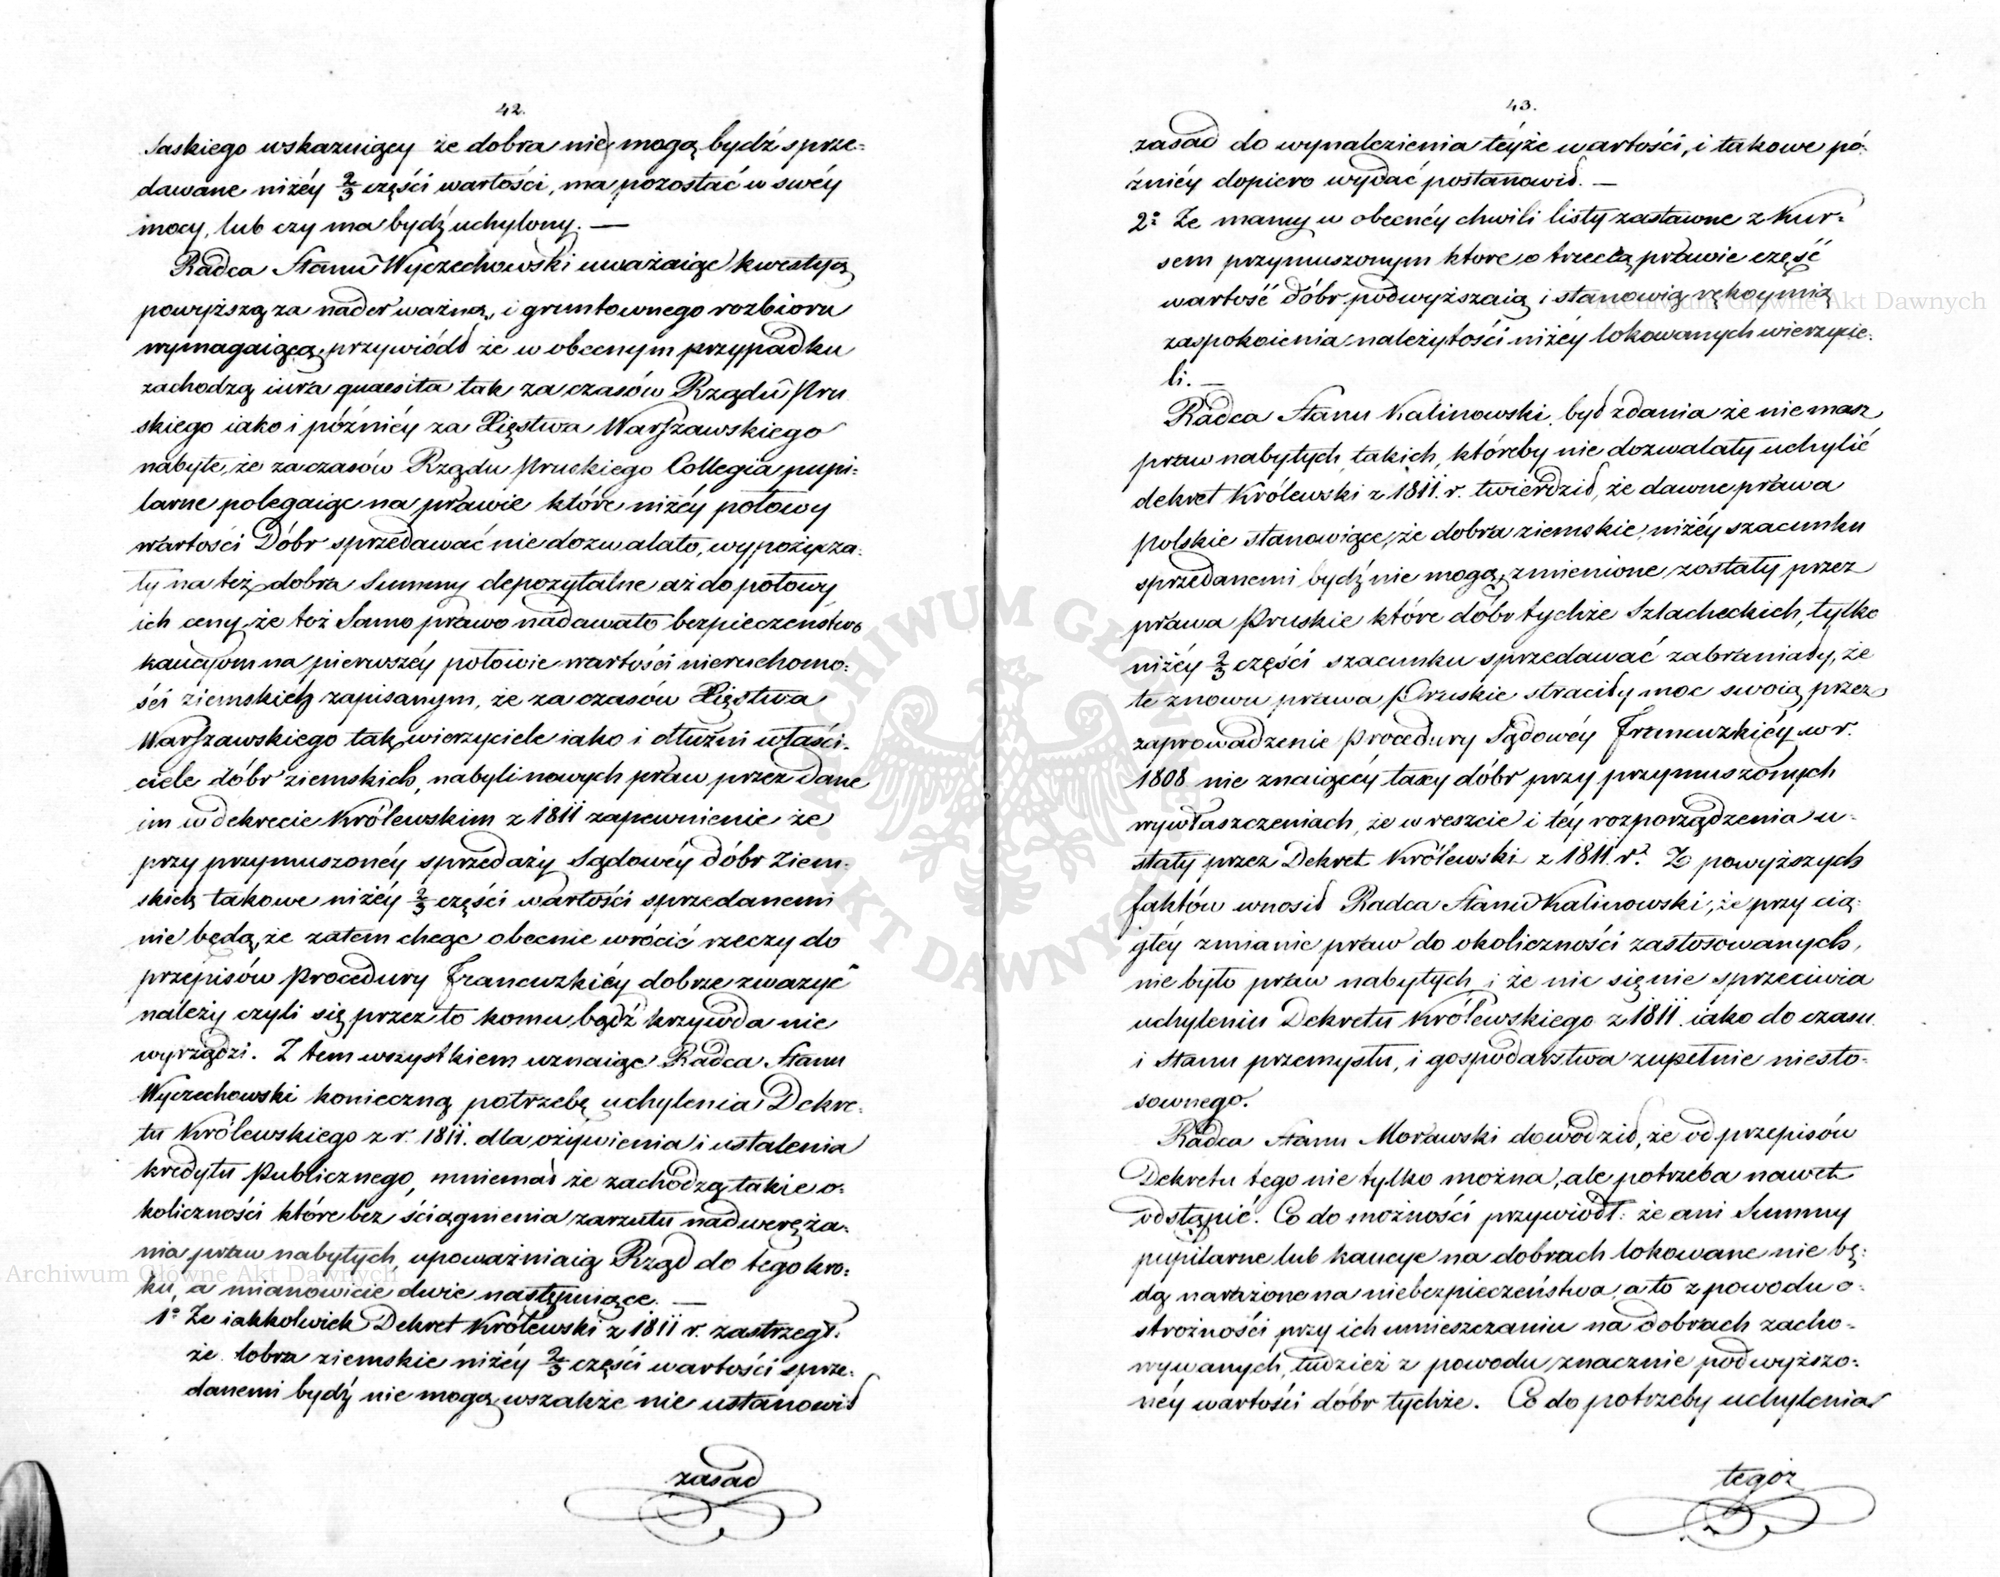 42.
Saskiego wskazuiący że dobra nie mogą bydź sprze-
dawane niżéy 2/3 części wartości, ma pozostać w swéy
mocy, lub czy ma bydź uchylony. —
Radca Stanu Wyczechowski uważaiąc kwestyą
powyższą za nader ważną, i gruntownego rozbioru
wymagaiącą, przywiódł że w obecnym przypadku
zachodzą iura quaesita tak za czasów Rządu Pru
skiego iako i późniéy za Xięstwa Warszawskiego
nabyte, że za czasów Rządu Pruskiego Collegia pupi-
larne polegaiąc na prawie które niżéy połowy
wartości Dóbr sprzedawać nie dozwalało, wypożycza-
ły na też dobra Summy depozytalne aż do połowy
ich ceny, że toż Samo prawo nadawało bezpieczeństwo
kaucyom na pierwszéy połowie wartości nieruchomo-
ści ziemskich zapisanym, że za czasów Xięstwa
Warszawskiego tak wierzyciele iako i dłużni właści-
ciele dóbr ziemskich, nabyli nowych praw przez dane
im w dekrecie Królewskim z 1811 zapewnienie że
przy przymuszonéy sprzedaży Sądowéy dóbr Ziem-
skich takowe niżéy 2/3 części wartości sprzedanemi
nie będą, że zatem chcąc obecnie wrócić rzeczy do
przepisów Procedury Francuzkiéy dobrze zważyć
należy czyli się przez to komu bądź krzywda nie
wyrządzi. Z tem wszystkiem uznaiąc Radca Stanu
Wyczechowski konieczną potrzebę uchylenia Dekre-
tu Królewskiego z r. 1811. dla ożywienia i ustalenia
kredytu Publicznego, mniemał że zachodzą takie o-
koliczności które bez ściągnienia zarzutu nadweręża-
nia praw nabytych, upoważniaią Rząd do tego kro-
ku, a mianowicie dwie następuiące. —
1° Że iakkolwiek Dekret Królewski z 1811 r. zastrzegł.
że dobra ziemskie niżéy 2/3 części wartości sprze-
danemi bydź nie mogą, wszakże nie ustanowił
zasad
43.
zasad do wynalezienia téyże wartości, i takowe pó-
źniéy dopiero wydać postanowił. —
2° Że mamy w obecnéy chwili listy zastawne z Kur-
sem przymuszonym które o trzecią prawie część
wartość dóbr podwyższaią i stanowią rękoymią
zaspokoienia należytości niżéy lokowanych wierzycie-
li. —
Radca Stanu Kalinowski był zdania że nie masz
praw nabytych takich, któreby nie dozwalały uchylić
dekret Królewski z 1811. r. twierdził, że dawne prawa
polskie stanowiące, że dobra ziemskie niżéy szacunku
sprzedanemi bydź nie mogą, zmienione zostały przez
prawa Pruskie które dóbr tychże Szlacheckich, tylko
niżéy 2/3 części szacunku sprzedawać zabraniały, że
te znowu prawa Pruskie straciły moc swoią przez
zaprowadzenie Procedury Sądowéy Francuzkiéy w r.
1808 nie znaiącéy taxy dóbr przy przymuszonych
wywłaszczeniach, że w reszcie i téy rozporządzenia u-
stały przez Dekret Królewski z 1811 r. Z powyższych
faktów wnosił Radca Stanu Kalinowski, że przy cią-
głéy zmianie praw do okoliczności zastosowanych,
nie było praw nabytych i że nic się nie sprzeciwia
uchyleniu Dekretu Królewskiego z 1811 iako do czasu
i Stanu przemysłu, i gospodarstwa zupełnie niesto-
sownego.
Radca Stanu Morawski dowodził, że od przepisów
Dekretu tego nie tylko można, ale potrzeba nawet
odstąpić. Co do możności przywiódł: że ani Summy
pupilarne lub kaucye na dobrach lokowane nie bę-
dą narażone na niebezpieczeństwa, a to z powodu o-
strożności przy ich umieszczaniu na dobrach zacho-
wywanych, tudzież z powodu znacznie podwyższo-
néy wartości dóbr tychże. Co do potrzeby uchylenia
tegoż
Archiwum Główne Akt Dawnych
Archiwum Główne Akt Dawnych
ARCHIWUM GŁÓWNE AKT DAWNYCH